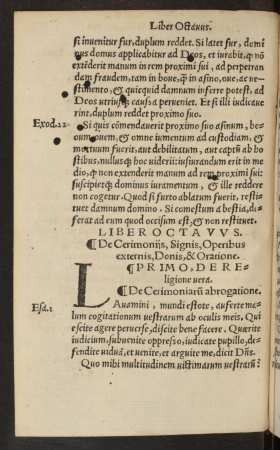 Liber Octauus.
si inuenitur fur, duplum reddet. Si latet fur, domi
nus domus applicabitur ad Deos, et iurabit, ꝙ nō
extēderit manum in rem proximi sui, ad perperan
dam fraudem, tam in boue, ꝙ in asino, oue, ac ve-
stimento, & quicquid damnum inferre potest, ad
Deos utriusq; causa perueniet. Et si illi iudicaue
rint, duplum reddet proximo suo.
Exod.22. Si quis cōmendauerit proximo suo asinum, bo-
uem, ouem, & omne iumentum ad custodiam, &
mortuum fuerit, aut debilitatum, aut captū ab ho
stibus, nullusq; hoc uiderit: iusiurandum erit in me
dio, ꝙ non extenderit manum ad rem proximi sui:
suscipietq; dominus iuramentum, & ille reddere
non cogetur. Quod si furto ablatum fuerit, resti-
tuet damnum domino. Si comestum a bestia, de-
ferat ad eum quod occisum est, & non restituet.
LIBER OCTAVVS.
¶ De Cerimonijs, Signis, Operibus
externis, Donis, & Oratione.
¶ PRIMO, DE RE-
ligione uera.
¶ De Cerimoniarū abrogatione.
Esa.1 LAuamini, mundi estote, auferte ma-
lum cogitationum uestrarum ab oculis meis. Qui
escite agere peruerse, discite bene facere. Quærite
iudicium, subuenite oppresso, iudicate pupillo, de-
fendite viduā, et uenite, et arguite me, dicit Dn̄s.
Quo mihi multitudinem uictimarum uestrarū?